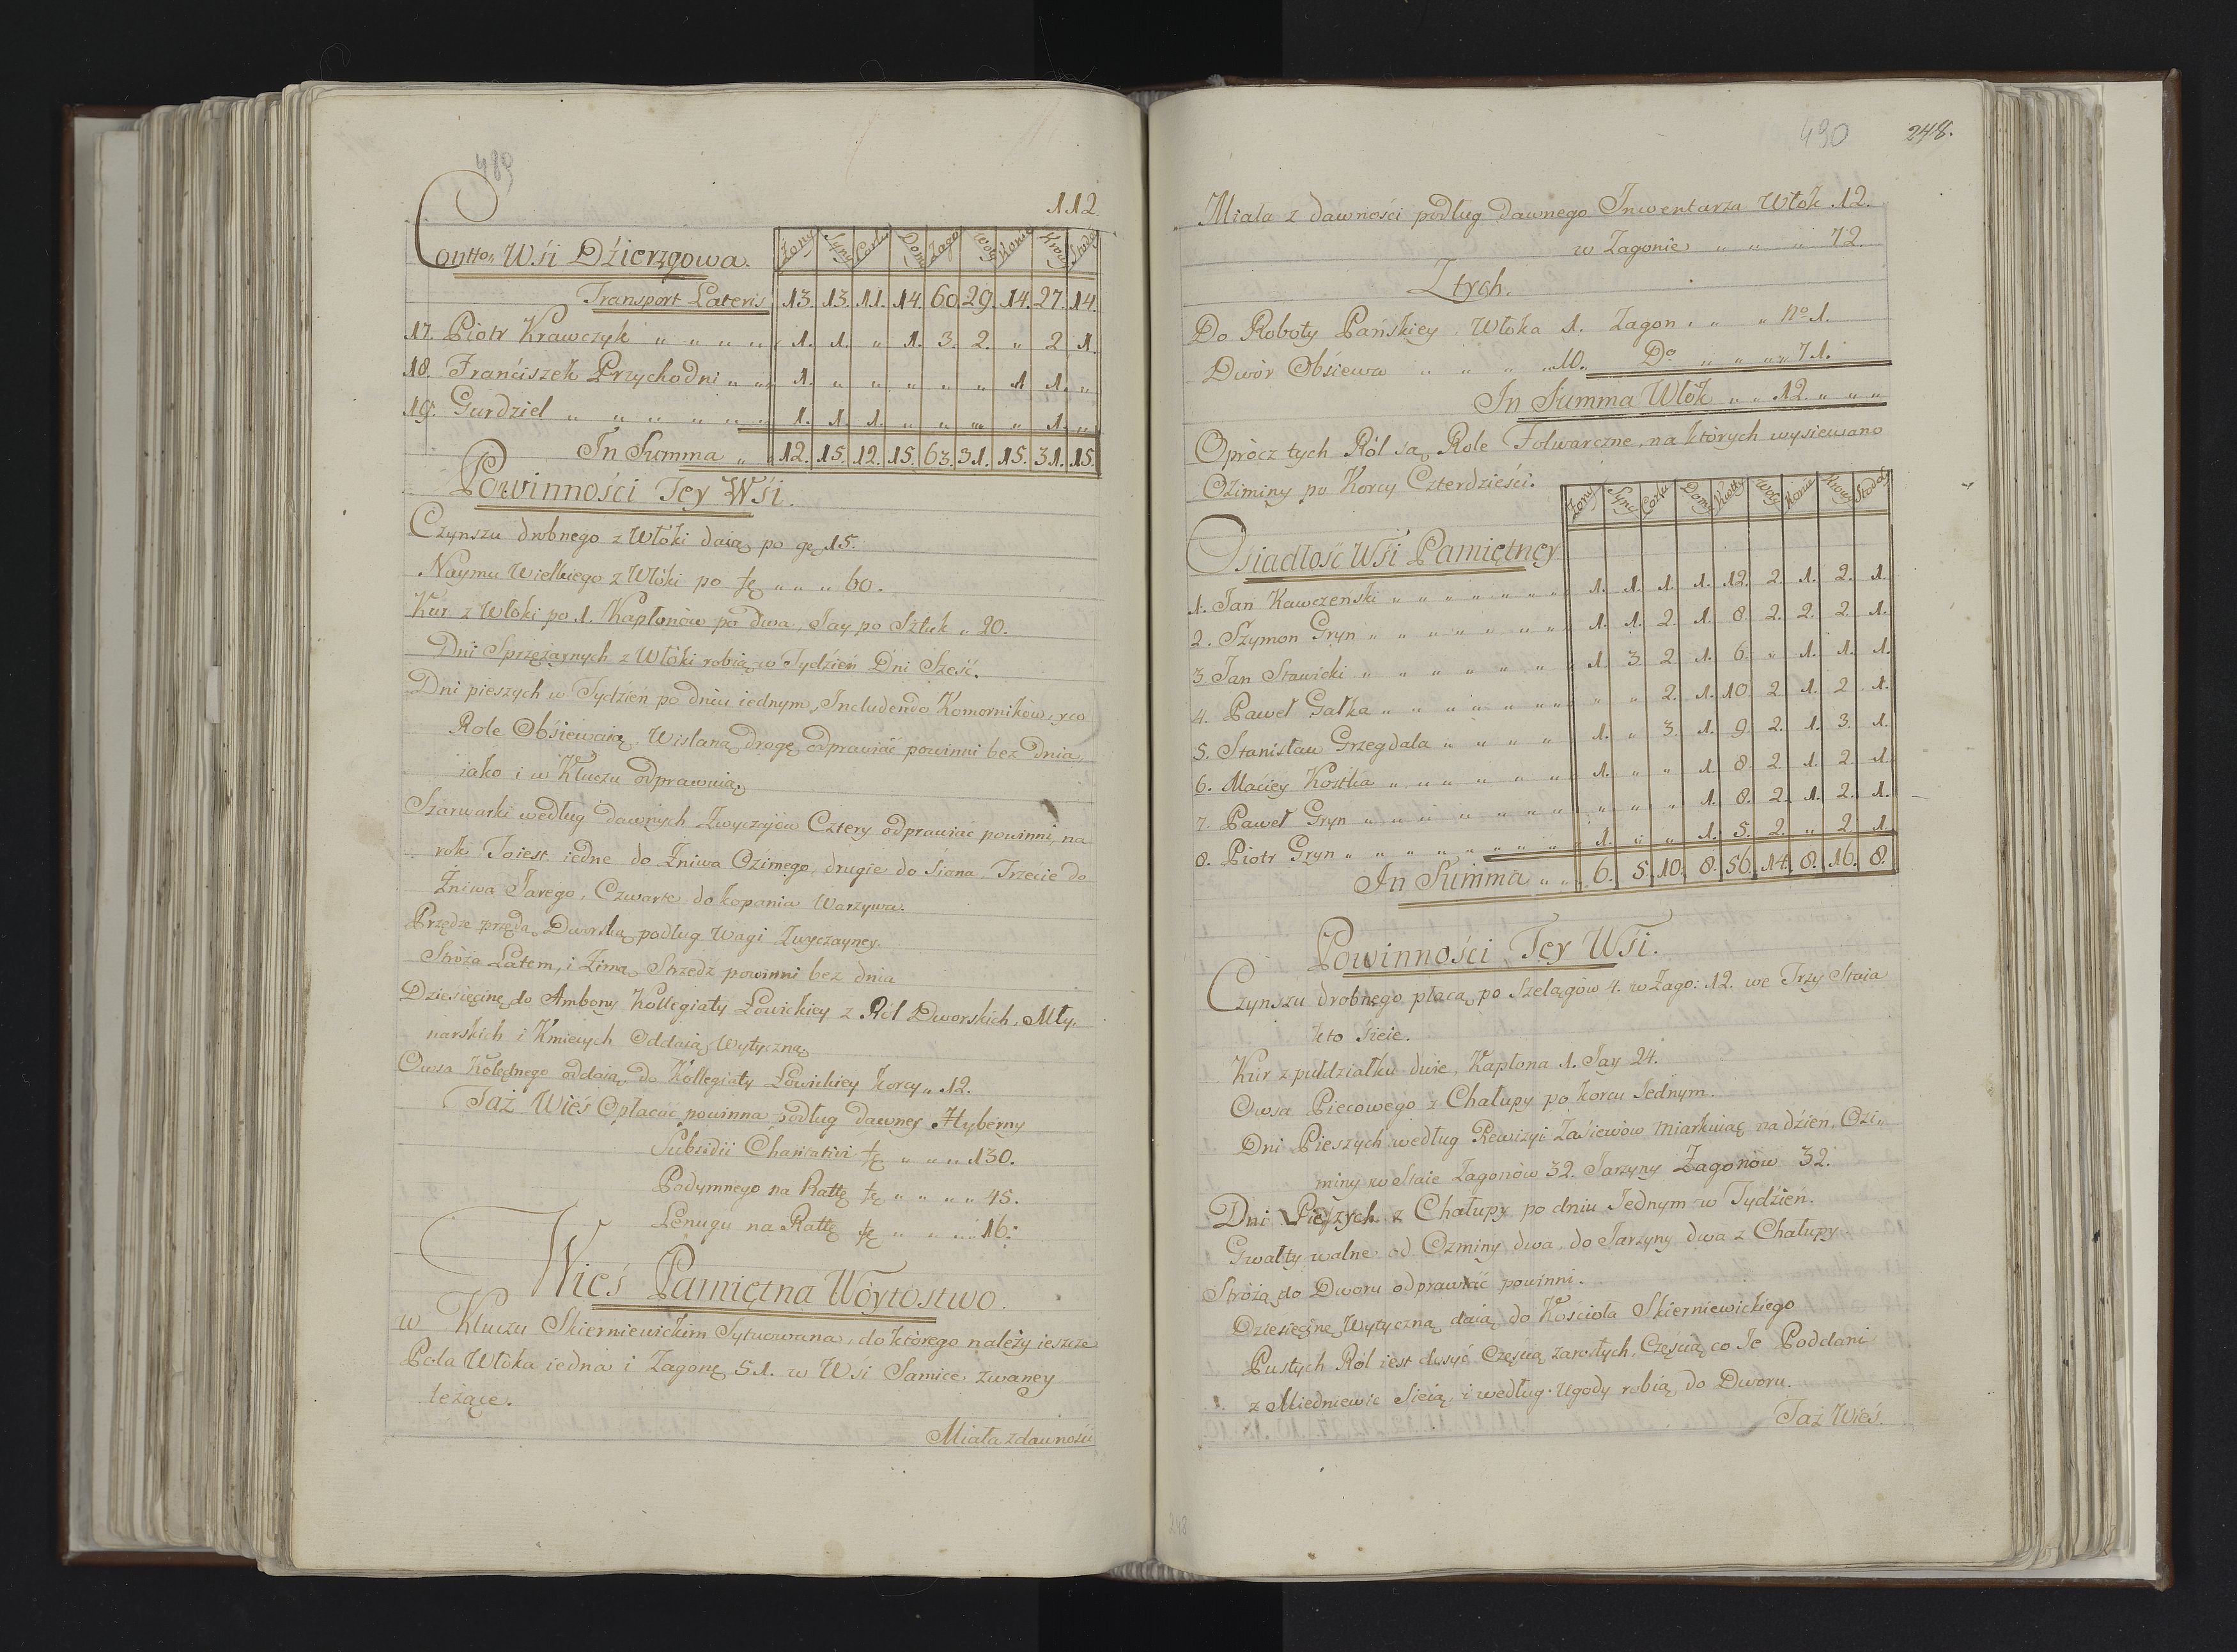 489
112.
Contto. Wsi Dzierzgowa. Żony Syny Corki Domy Zago Woły Konie Krow Stodoł
Transport Lateris 13. 13. 11. 14. 60. 29. 14. 27. 14.
17. Piotr Krawczyk „ „ „ „ 1. 1. „ 1. 3. 2. „ 2 1.
18. Franciszek Przychodni „ „ 1. „ „ „ „ „ 1 1. „
19. Gurdziel „ „ „ „ „ „ 1. 1. 1. „ „ „ „ 1. „
In Summa „ „ 12. 15. 12. 15. 63. 31. 15. 31. 15.
Powinności Tey Wśi.
Czynszu drobnego z Włóki daią po gę 15.
Naymu Wielkiego z Włóki po fę „ „ „ 60.
Kur z Włoki po 1. Kapłonow po dwa, Jay po Sztuk „ 20.
Dni Sprzężaynych z Włóki robią w Tydzień Dni Sześć.
Dni pieszych w Tydzień po dniu iednym, Includendo Komorników, yco
Role Obśiewaią, Wislaną drogę odprawiać powinni bez Dnia,
iako i w Kluczu odprawuią
Szarwarki według dawnych Zwyczajow Cztery odprawiać powinni, na
rok Toiest iedne do Żniwa Ozimego, drugie do Siana, Trzecie do
Żniwa Jarego, Czwarte do kopania Warzywa.
Przędze przędą Dworską podług Wagi Zwyczayney.
Stróża Latem, i Zimą Strzedz powinni bez dnia
Dziesięcinę do Ambony Kollegiaty Łowickiey z Ról Dworskich, Mły„
narskich i Kmiecych Oddaią Wytyczną
Owsa Kolędnego oddaią do Kollegiaty Łowickiey Korcy „ 12.
Taż Wieś Opłacać powinna podług dawney Hyberny
Subsidii Charitativi fę „ „ „ 130.
Podymnego na Rattę fę „ „ „ „ 45.
Lenugu na Rattę fę „ „ „ 16:
Wieś Pamiętna Wóytostwo.
w Kluczu Skierniewickim Sytuowana, do którego należy ieszcze
Pola Włóka iedna i Zagonę 51. w Wśi Samice zwaney
leżące.
Miała zdawności
490 248.
Miała z dawności podług dawnego Inwentarza Włók 12.
w Zagonie „ „ „ 72.
Ztych.
Do Roboty Pańskiey Włoka 1. Zagon „ „ „ No 1.
Dwór Obśiewa „ „ „ „ 10. Do „ „ „ „ 71.
In Summa Włók „ „ 12. „ „ „
Oprócz tych Ról są Role Folwarczne, na których wysiewano
Oziminy po Korcy Czterdzieści.
Żony Syny Corki Domy Woły Konie Krowy Stodoły
Osiadłość Wśi Pamiętney
1. Jan Kawczenski „ „ „ „ „ „ 1. 1. 1. 1. 12. 2. 1. 2. 1.
2. Szymon Gryn „ „ „ „ „ „ „ 1. 1. 2. 1. 8. 2. 2. 2. 1.
3. Jan Stawicki „ „ „ „ „ „ 1. 3. 2. 1. 6. „ 1. 1. 1.
4. Paweł Gałka „ „ „ „ „ „ „ „ „ 2. 1. 10. 2. 1. 2. 1.
5. Stanisław Grzegdala „ „ „ „ 1. „ 3. 1. 9. 2. 1. 3. 1.
6. Maciey Kostka „ „ „ „ „ „ 1. „ „ 1. 8. 2. 1. 2. 1.
7. Paweł Gryn „ „ „ „ „ „ „ „ „ „ 1. 8. 2. 1. 2. 1.
8. Piotr Gryn „ „ „ „ „ „ „ 1. „ „ 1. 5. 2. „ 2. 1.
In Summa „ „ 6. 5. 10. 8. 56. 14. 8. 16. 8.
Powinności Tey Wśi.
Czynszu drobnego płacą po Szelągów 4. w Zago: 12. we Trzy Staia
kto śieie.
Kur z pułdziałku dwie, Kapłona 1. Jay 24.
Owsa Piecowego z Chałupy po korcu Jednym.
Dni Pieszych według Rewizyi Zasiewow miarkuiąc na dzień, Ozi„
miny w Staie Zagonów 32. Jarzyny Zagonów 32.
Dni Pieszych z Chałupy po dniu Jednym w Tydzień.
Gwałty walne od Ozminy dwa, do Jarzyny dwa z Chałupy
Stróżą do Dworu odprawiać powinni.
Dziesięcinę Wytyczną daią do Kościoła Skierniewickiego
Pustych Ról iest dosyć Częścią zarosłych, Częścią co Je Poddani
z Miedniewic Sieią, i według Ugody robią do Dworu.
Taż Wieś.
248